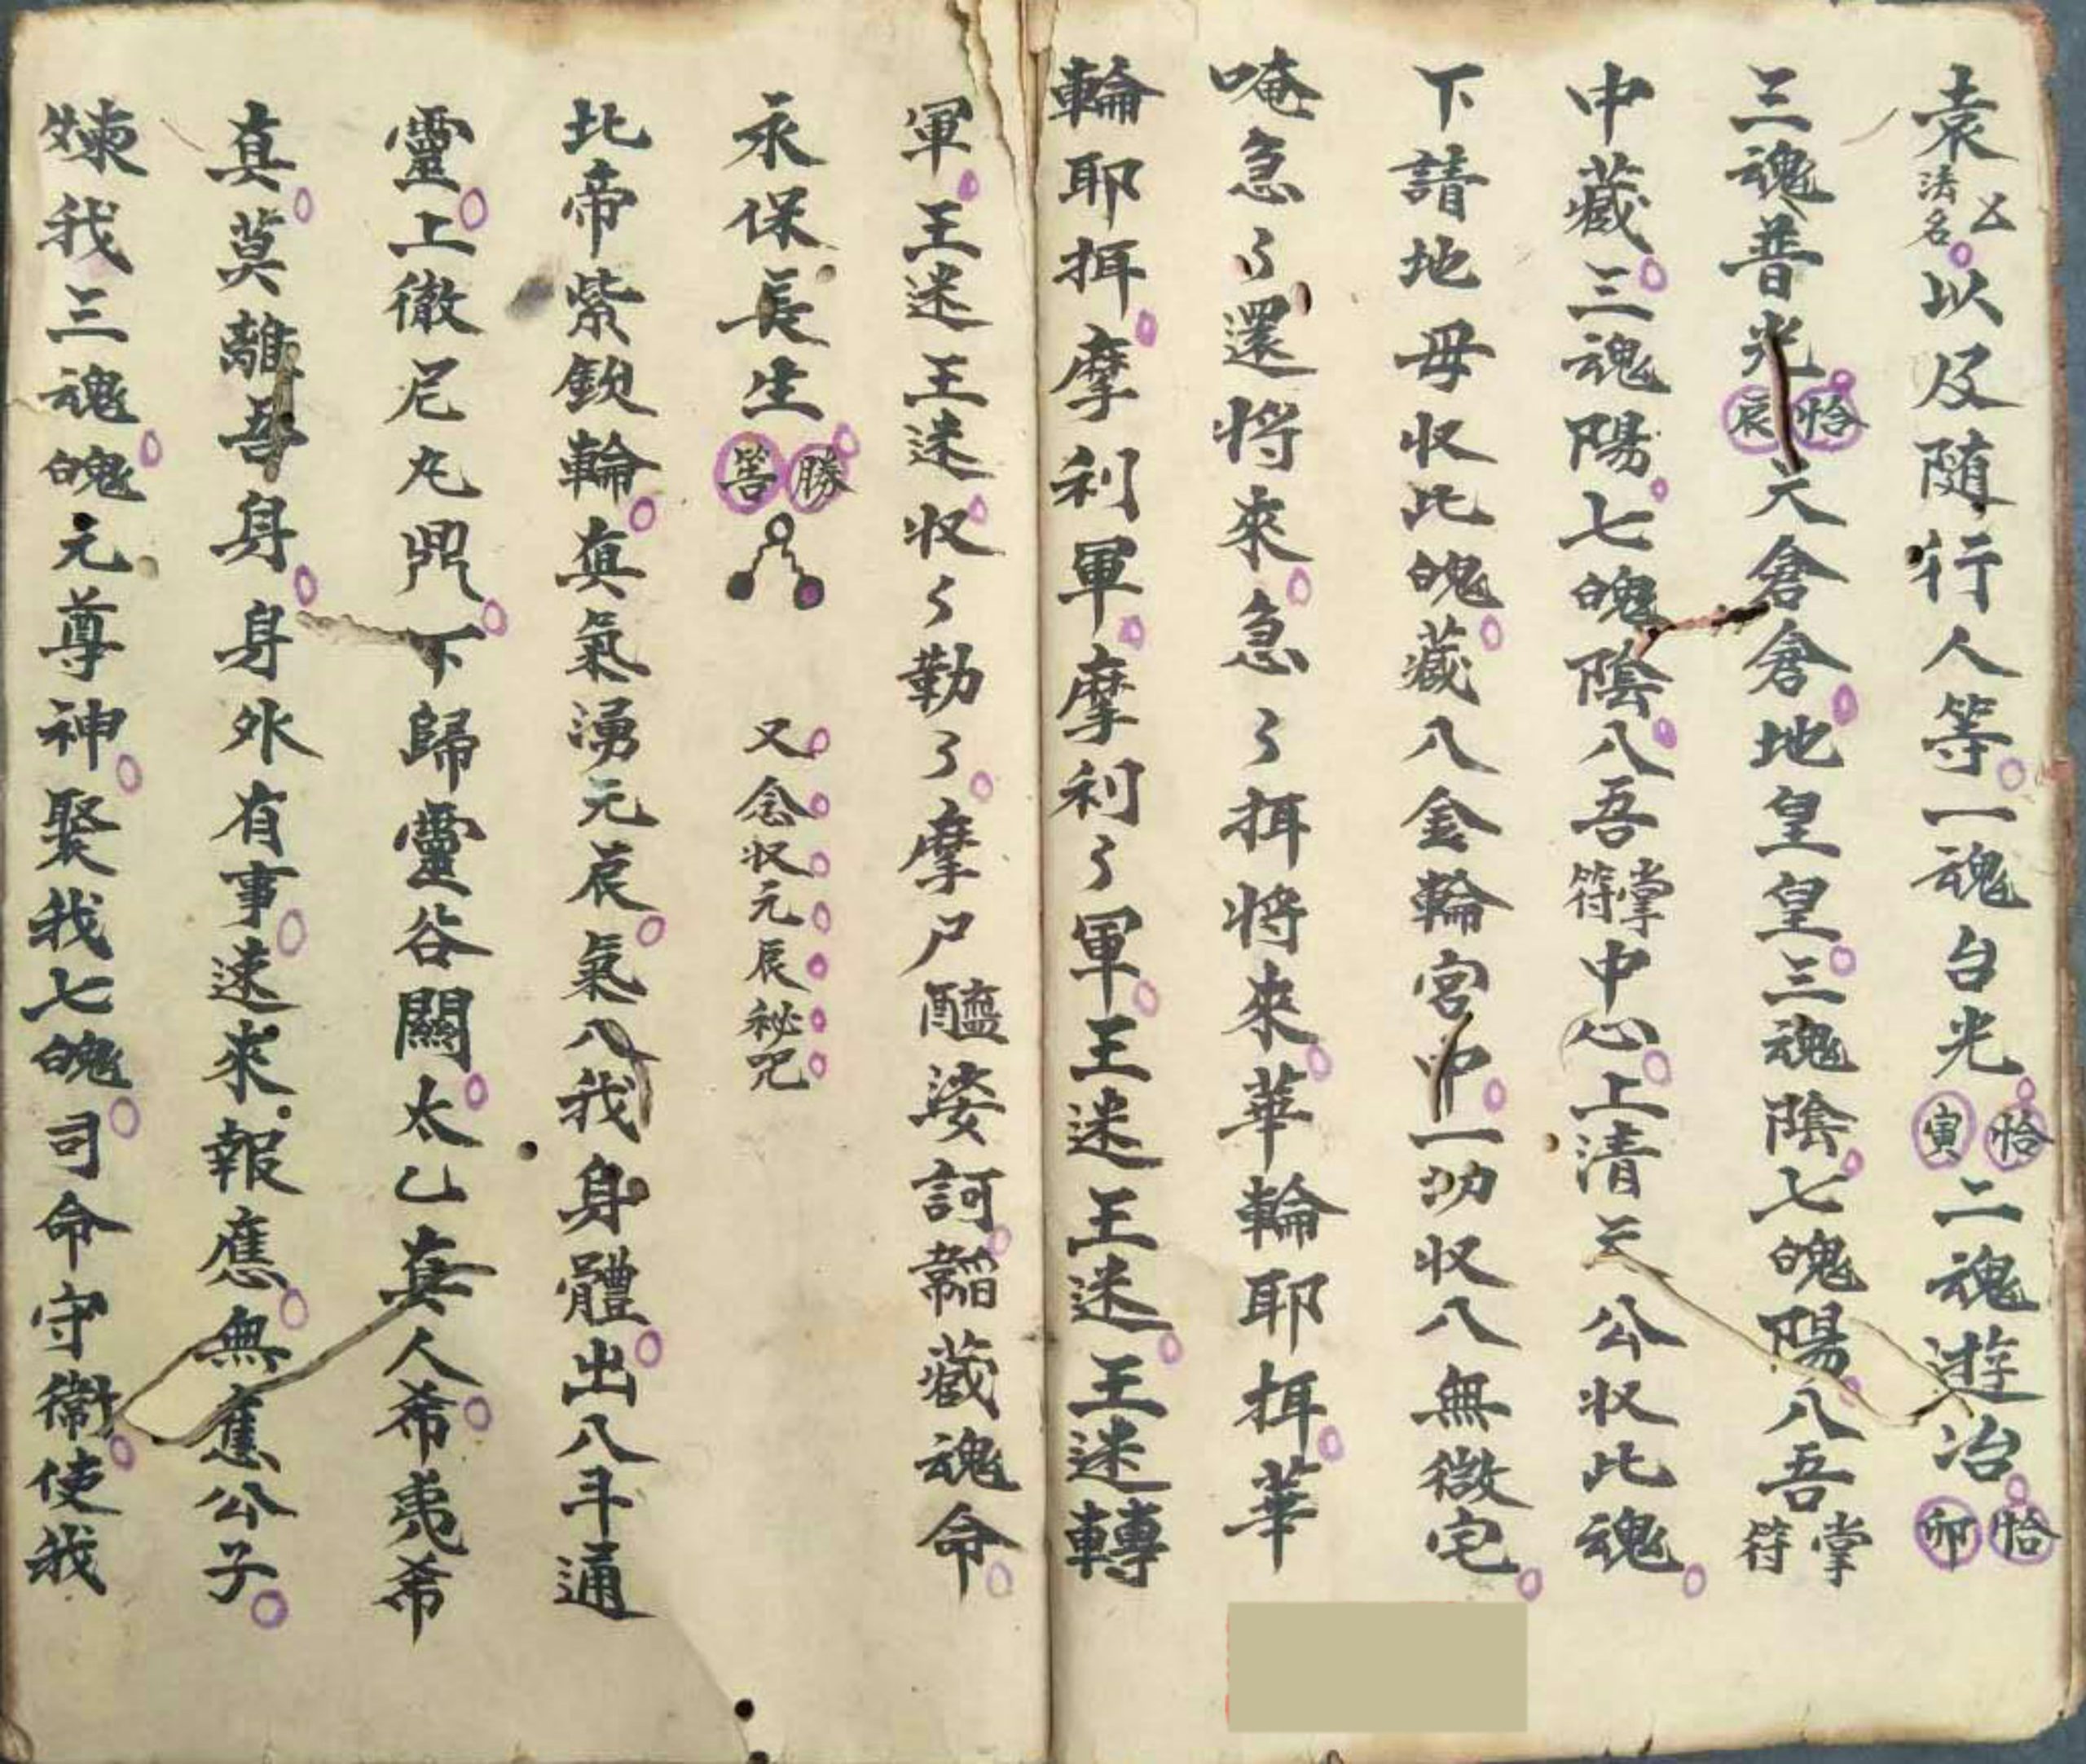 袁法名厶以及随行人等一魂台光恰寅二魂遊冶恰卯
三魂普光恰辰天倉倉地皇皇三魂陰七魄陽八吾掌符
中藏三魂陽七魄陰八吾掌符中心上清三公收此魂
下請地母收此魄藏八金輪宮中一切收八無微宅
唵急〻還将來急〻挕将來華輪耶挕華
輪耶挕摩利軍摩利〻軍王迷王迷王迷轉
軍王迷王迷収〻勒〻摩尸醯娑訶韜藏魂命
永保長生勝筶 又念収元辰秘咒
北帝紫欽輪真氣湧元辰氣八我身體出八斗通
靈上徹尼丸咒下歸靈谷關太乙真人希夷希
真莫離吾身身外有事速來報應無應公子
煉我三魂魄元尊神聚我七魄司命守衛使我